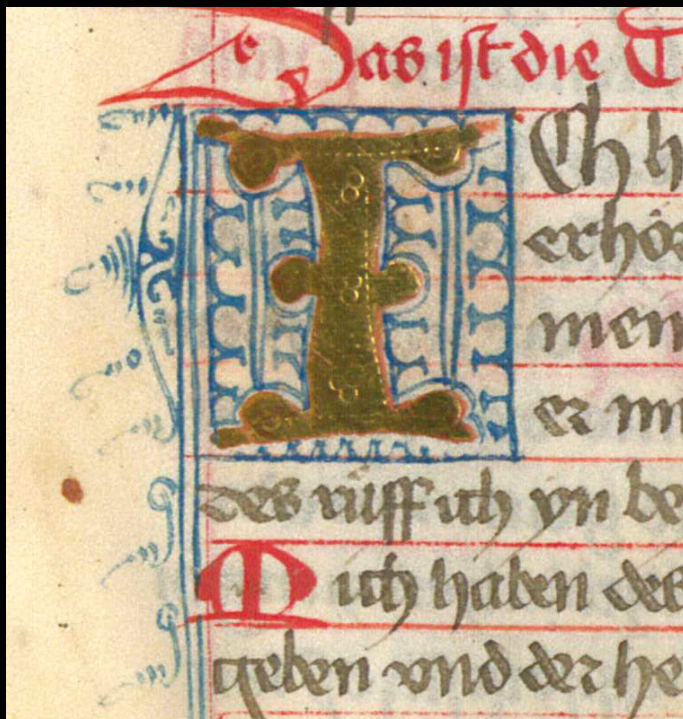 Das ist die
ICh
erhö
men
er
des rüff ich yn be
Mich haben des
geben vnd der he